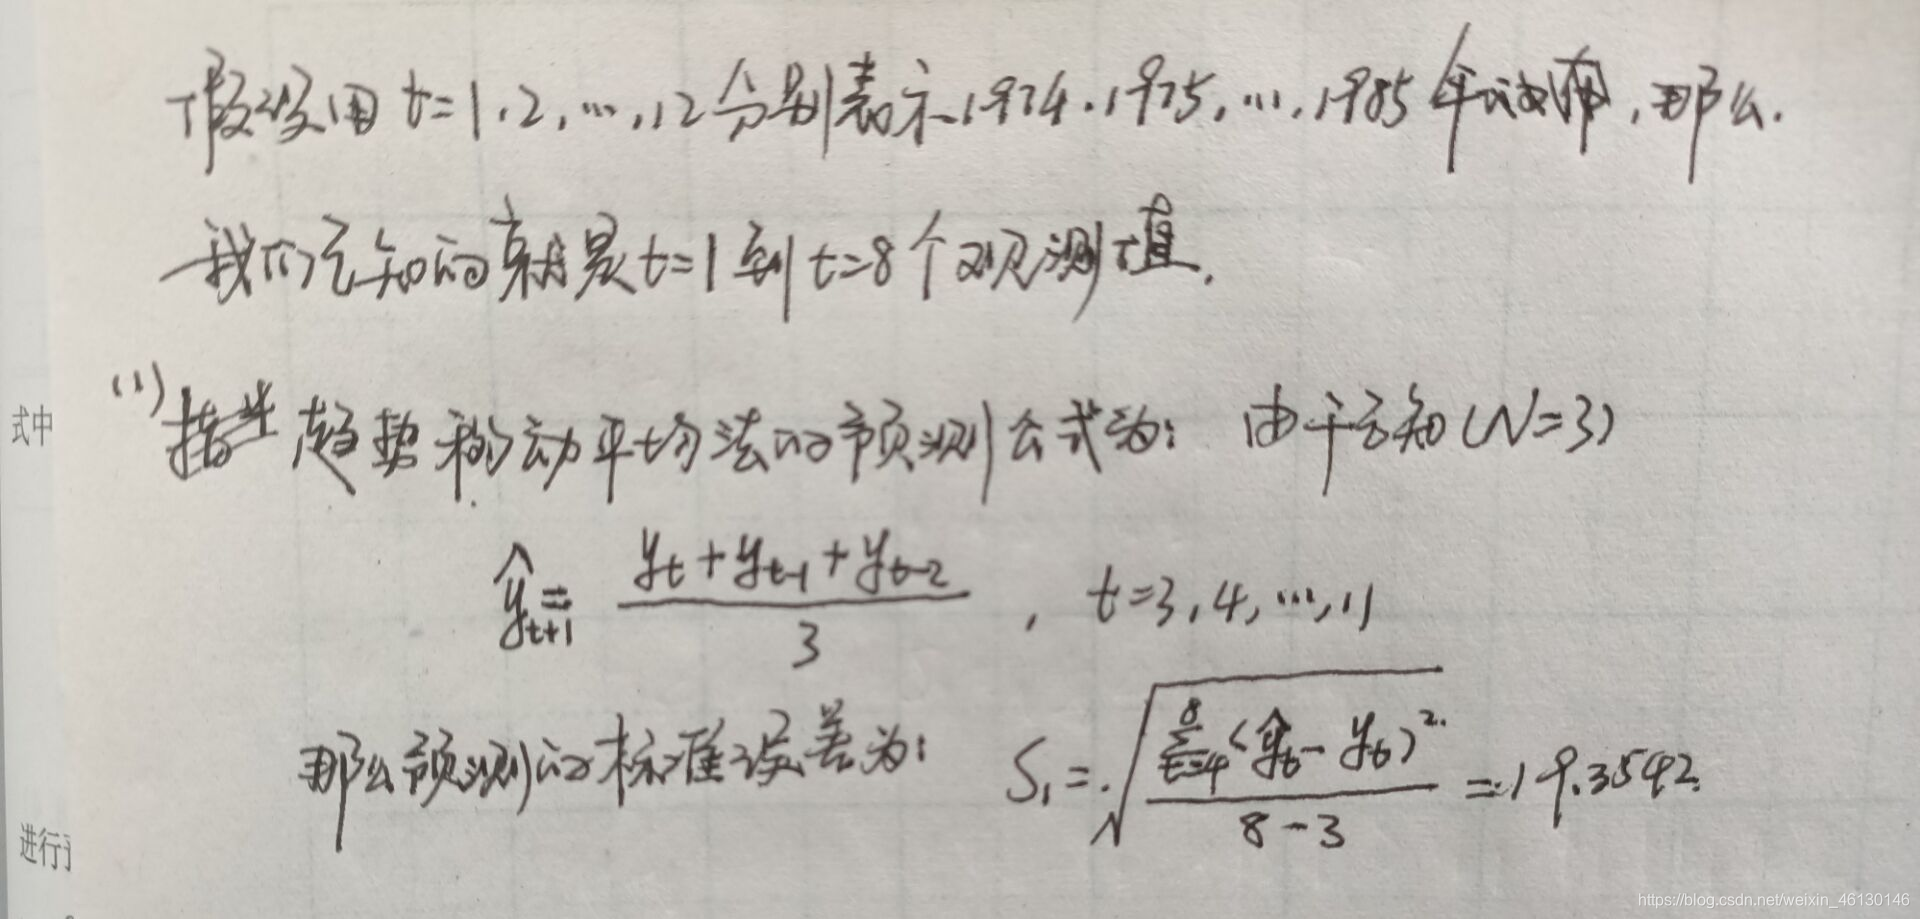 假设用 t=1,2,…,12分别表示1974,1975,…,1985年, 那么.
我们已知的就是t=1到t=8个观测值.
式中
(1) 趋势移动平均法的预测公式为: 由于已知(N=3)
ŷ_{t+1} = \frac{y_t + y_{t-1} + y_{t-2}}{3} , t=3,4,…,11
那么预测的标准误差为: S_1 = \sqrt{\frac{\sum_{t=4}^{8}(ŷ_t - y_t)^2}{8-3}} = 19.3542
进行
https://blog.csdn.net/weixin_46130146